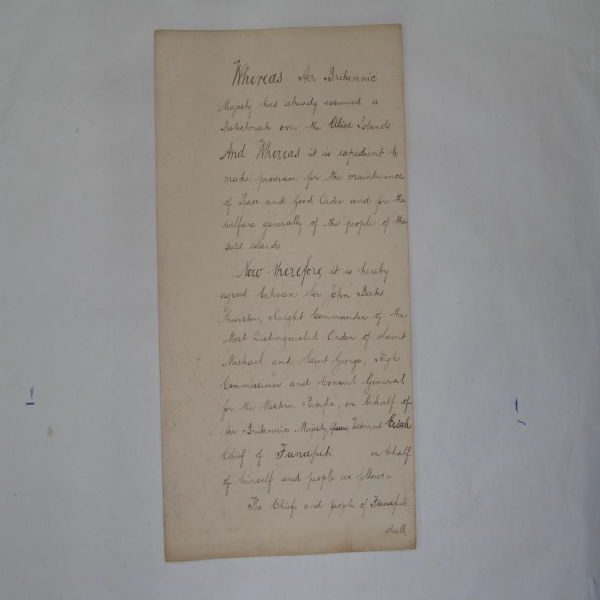 Whereas Her Britannic
Majesty has already assumed a
Protectorate over the Ellice Islands
And Whereas it is expedient to
make provision for the maintenance
of Peace and Good Order and for the
welfare generally of the people of the
said islands
Now therefore it is hereby
agreed between Sir John Bates
Thurston, Knight Commander of the
Most Distinguished Order of Saint
Michael and Saint George, High
Commissioner and Consul General
for the Western Pacific, on behalf of
Her Britannic Majesty, Queen Victoria, and
Chief of Funafuti on behalf
of himself and people as follows-
The Chiefs and people of Funafuti
shall